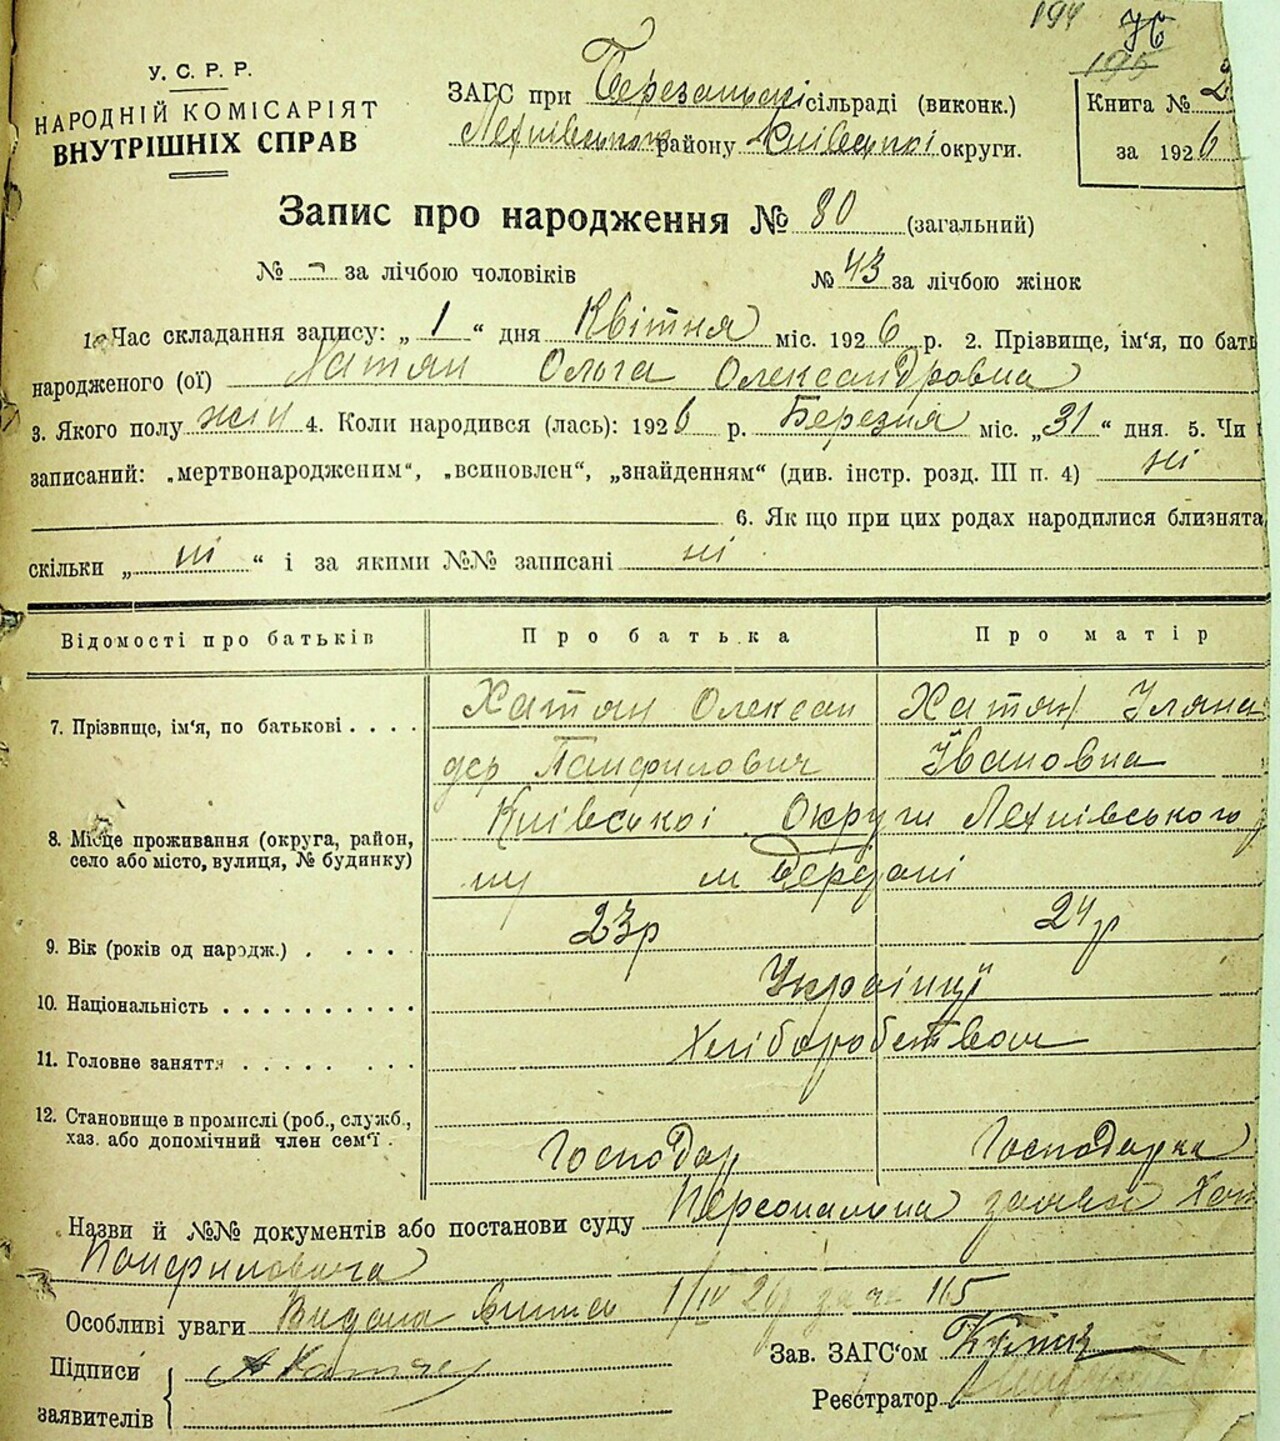 194 76
195
У. С. Р. Р.
НАРОДНІЙ КОМІСАРІЯТ
ВНУТРІШНІХ СПРАВ
ЗАГС при Березанській сільраді (виконк.)
району Київської округи.
Книга № 2
за 1926
Запис про народження № 80 (загальний)
№ – за лічбою чоловіків № 43 за лічбою жінок
1. Час складання запису: „ 1 “ дня Квітня міс. 1926 р. 2. Прізвище, ім'я, по бать
народженого (ої) Хатян Ольга Олександровна
3. Якого полу жін 4. Коли народився (лась): 1926 р. Березня міс. „31“ дня. 5. Чи
записаний: „мертвонародженим“, „всиновлен“, „знайденням“ (див. інстр. розд. III п. 4) ні
6. Як що при цих родах народилися близнята
скільки „ ні “ і за якими №№ записані ні
Відомості про батьків Про батька Про матір
7. Прізвище, ім'я, по батькові . . . . Хатян Олексан Хатян Уляна
дер Панфилович Івановна
Київської Округи
8. Місце проживання (округа, район,
село або місто, вулиця, № будинку)
ну м Березані
9. Вік (років од народж.) . . . . . 23р 24р
10. Національність . . . . . . . . . . Українці
11. Головне заняття . . . . . . . . Хліборобством
12. Становище в промислі (роб., служб.,
хаз. або допомічний член сем'ї .
Господар Господарка
Назви й №№ документів або постанови суду Персональна заява Хат
Панфиловича
Особливі уваги Видана 1/IV 26р за № 165
Підписи А Хатян
заявителів
Зав. ЗАГС'ом
Реєстратор